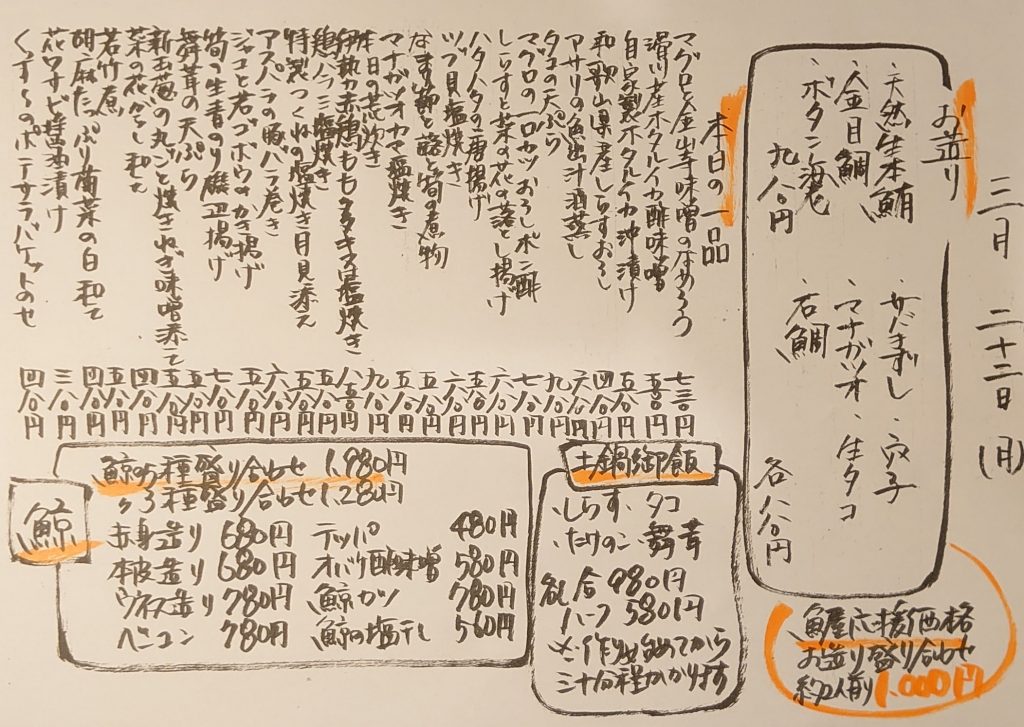 三月 二十二日(月)
お造り
・天然生本鮪
・金目鯛
・ボタン海老
九八〇円
・きずし ・穴子
・マナガツオ ・生タコ
・石鯛
各八〇円
魚屋応援価格
お造り盛り合わせ
約2人前 1,000円
本日の一品
マグロと金山寺味噌のなめろう 七三〇円
滑川産ホタルイカ酢味噌 五五〇円
自家製ホタルイカ沖漬け 五八〇円
和歌山県産しらすおろし 四八〇円
アサリの魚出汁酒蒸し 六八〇円
タコの天ぷら 九八〇円
マグロの一口カツおろしポン酢 九八〇円
しらすと菜の花の落とし揚げ 六八〇円
ハタハタの唐揚げ 五八〇円
ツブ貝塩焼き 六八〇円
なまり節と蕗と筍の煮物 五八〇円
マナガツオカマ塩焼き 五八〇円
本日の荒炊き 九八〇円
伊勢赤鶏もも タタキ又は塩焼き 八五〇円
鶏ハラミ塩焼き 五八〇円
特製つくねの塩焼き月見添え 五八〇円
アスパラの豚バラ巻き 六八〇円
ジャコと若ゴボウのかき揚げ 五八〇円
筍の生青のり磯辺揚げ 七八〇円
舞茸の天ぷら 五八〇円
新玉葱の丸ごと焼きねぎ味噌添え 五八〇円
菜の花からし和え 四八〇円
若竹煮 五八〇円
胡麻たっぷり菊菜の白和え 四八〇円
花ワサビ醤油漬け 三八〇円
くんすみのポテサラバケットのせ 四八〇円
土鍋御飯
・しらす ・タコ
・たけのこ ・舞茸
各一合 980円
ハーフ 580円
※作り始めてから
三十分程かかります
鯨
鯨の5種盛り合わせ 1,980円
〃3種盛り合わせ 1,280円
赤身造り 680円 テッパ 480円
本皮造り 680円 オバケ酢味噌 580円
ウネス造り 780円 鯨カツ 780円
ベーコン 780円 鯨の塩干し 560円